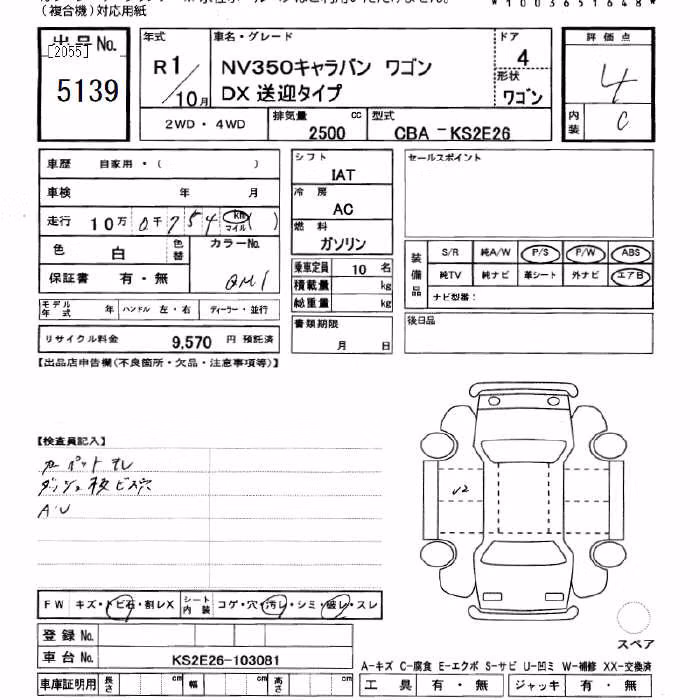 (複合機)対応用紙
*1003651648*
出品No.
[2055]
5139
年式
R1/10月
車名・グレード
NV350キャラバン ワゴン
DX 送迎タイプ
ドア
4
形状
ワゴン
2WD・4WD
排気量
2500 cc
型式
CBA－KS2E26
評価点
4
内装
C
車歴 自家用・( )
車検 年 月
走行 10万 0千754 km マイル ( )
色 白 色替
カラーNo. QM1
保証書 有・無
モデル年式 年 ハンドル 左・右 ディーラー・並行
リサイクル料金 9,570 円 預託済
シフト
IAT
冷房
AC
燃料
ガソリン
乗車定員 10 名
積載量 kg
総重量 kg
書類期限
月 日
セールスポイント
装備品
S/R 純A/W P/S P/W ABS
純TV 純ナビ 革シート 外ナビ エアB
ナビ型番：
後日品
【出品店申告欄(不良箇所・欠品・注意事項等)】
【検査員記入】
カーペットヨレ
ダッシュ板ビス穴
AU
U2
FW キズ・トビ石・割レX
シート内装 コゲ・穴・汚レ・シミ・破レ・スレ
登録No.
車台No. KS2E26-103081
車庫証明用 長さ cm 幅 cm 高さ cm
スペア
A-キズ C-腐食 E-エクボ S-サビ U-凹ミ W-補修 XX-交換済
工具 有・無 ジャッキ 有・無